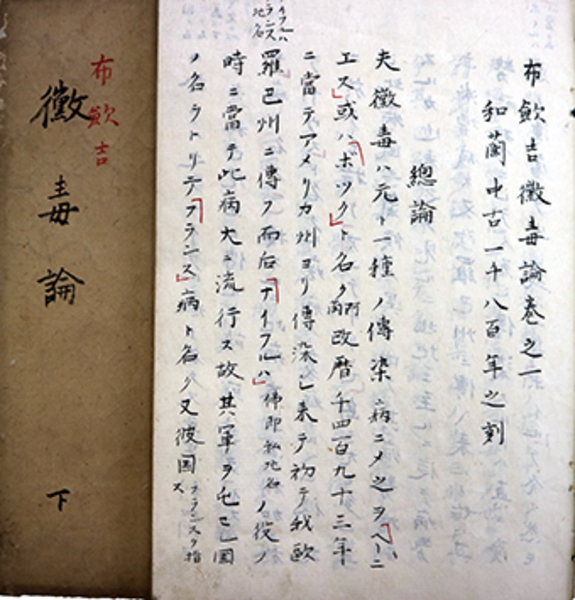 布歛吉黴毒論巻之一
和蘭中古一千八百年之刻
總論
夫黴毒ハ元ト一種ノ傳染病ニメ之ヲ「ヘーニ
エス」或ハ「ポック」ト名ク 暦千四百九十三年
ニ當テアメリカ州ヨリ傳染し来テ初テ我歐
羅巴州ニ傳フ而后「ナイフルハ」佛郎私地名ノ役ノ
時ニ當テ此病大ニ流行ス故其軍ヲ セシ國
ノ名ヲトリテ「フランス」病ト名ク又彼国フランスヲ指ス
イフルハ
フランス
地名
布歛吉
黴毒論
下